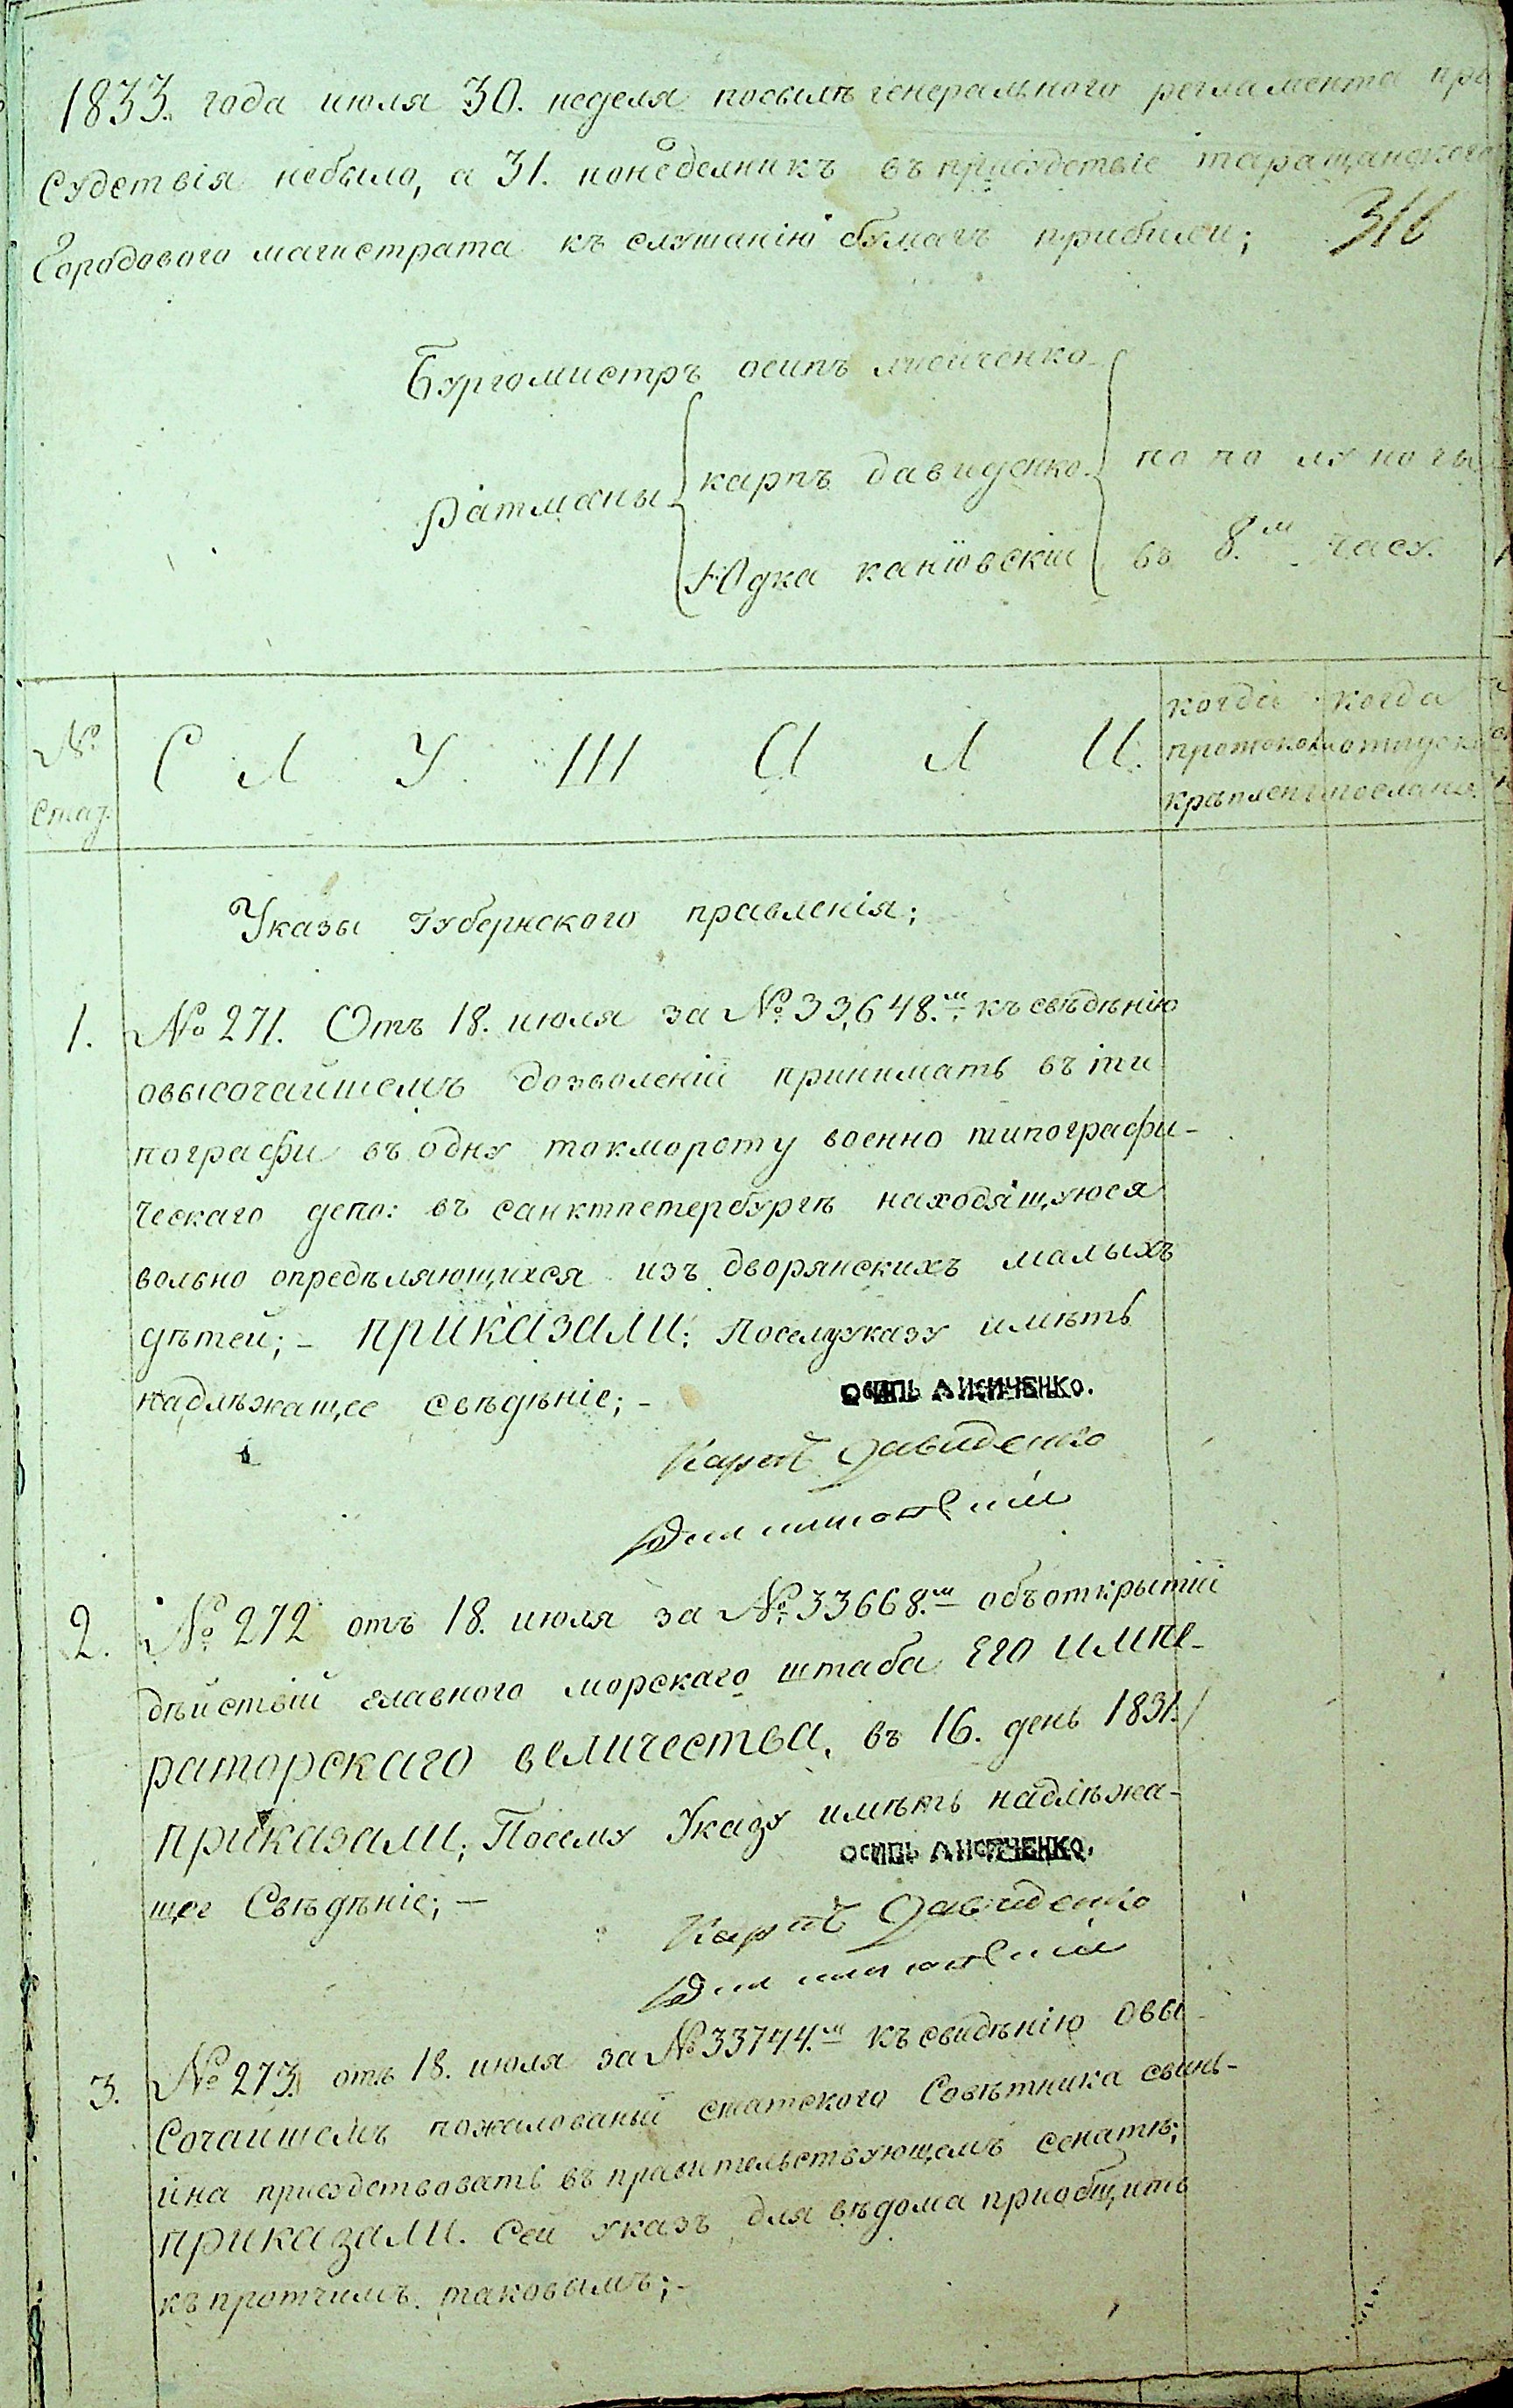 1833. года июля 30. неделя посылѣ генерального регламента при
судствія небыло, а 31. понедѣлникъ въ присудствіе таращанского
Городового магистрата къ слушанію бумагъ прибыли;
316
Бургомистръ осипъ лисиченко
Ратманы
карпъ давиденко
Юдка каніовскіи
по полуночы
въ 8.м часу.
№
стат.
С Л У Ш А Л И.
когда
протоколъ
крѣпленъ
когда
отпуски
посланы.
Указы Губернского правленія;
1. № 271. Отъ 18. июля за № 33,648.м къ свѣдѣнію
овысочайшемъ дозволеніи принимать въ ти
пографи въ одну токмороту военно типографи-
ческаго депо: въ санктпетербургѣ находящуюся
вольно опредѣляющихся изъ дворянскихъ малыхъ
дѣтей; – приказали: Посемууказу имѣть
надлѣжащее свѣдѣніе; –
осипь лисиченко.
Карпъ Давиденко
2. № 272 отъ 18. июля за № 33668.м объоткрытіи
дѣйствій главного морскаго штаба ЕГО ИМПЕ-
РАТОРСКАГО ВЕЛИЧЕСТВА, въ 16. день 1831.
приказали; Посему Указу имѣть надлѣжа-
щее Свѣдѣніе; –
осипь лисиченко.
Карпъ Давиденко
3. № 273. отъ 18. июля за № 33744.м къ свидѣнію овы-
Сочайшемъ пожалованый статского Совѣтника свинь-
ина присудствовать въ правительствующемъ сенатѣ;
приказали. Сей указъ для вѣдома приобщить
къ протчимъ таковымъ; –